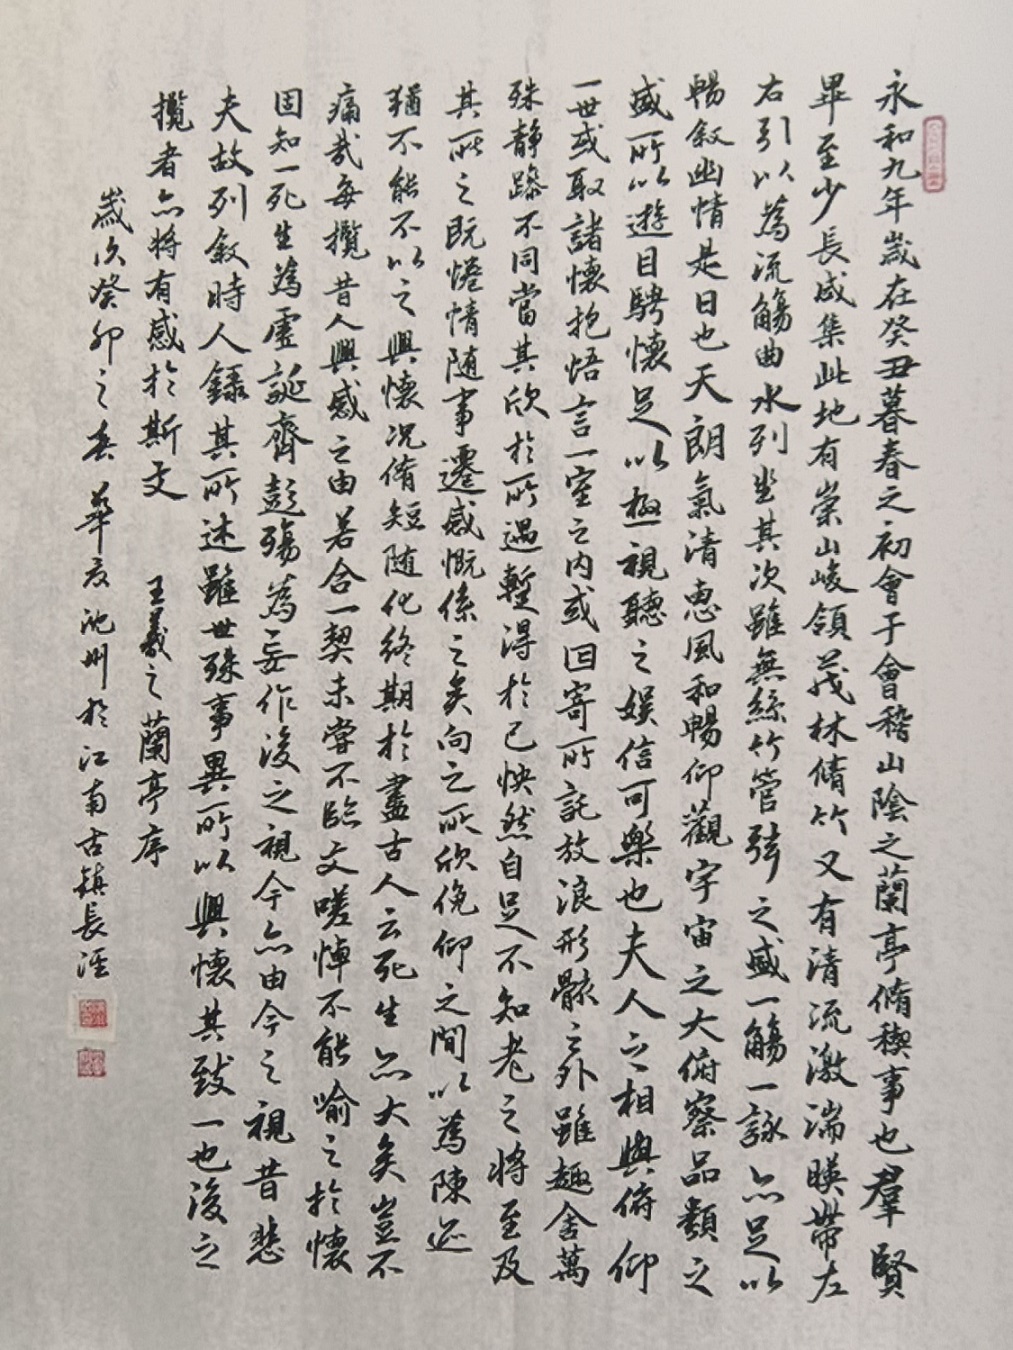 永和九年歲在癸丑暮春之初會于會稽山陰之蘭亭脩稧事也羣賢
畢至少長咸集此地有崇山峻領茂林脩竹又有清流激湍暎帶左
右引以為流觴曲水列坐其次雖無絲竹管弦之盛一觴一詠亦足以
暢叙幽情是日也天朗氣清惠風和暢仰觀宇宙之大俯察品類之
盛所以遊目騁懷足以極視聽之娛信可樂也夫人之相與俯仰
一世或取諸懷抱悟言一室之内或因寄所託放浪形骸之外雖趣舍萬
殊靜躁不同當其欣於所遇蹔得於己怏然自足不知老之將至及
其所之既惓情随事遷感慨係之矣向之所欣俛仰之間以為陳迹
猶不能不以之興懷况脩短随化終期於盡古人云死生亦大矣豈不
痛哉每攬昔人興感之由若合一契未嘗不臨文嗟悼不能喻之於懷
固知一死生為虚誕齊彭殤為妄作後之視今亦由今之視昔悲
夫故列叙時人錄其所述雖世殊事異所以興懷其致一也後之
攬者亦將有感於斯文 王羲之蘭亭序
歲次癸卯之春 華 沈州於江南古鎮長涇